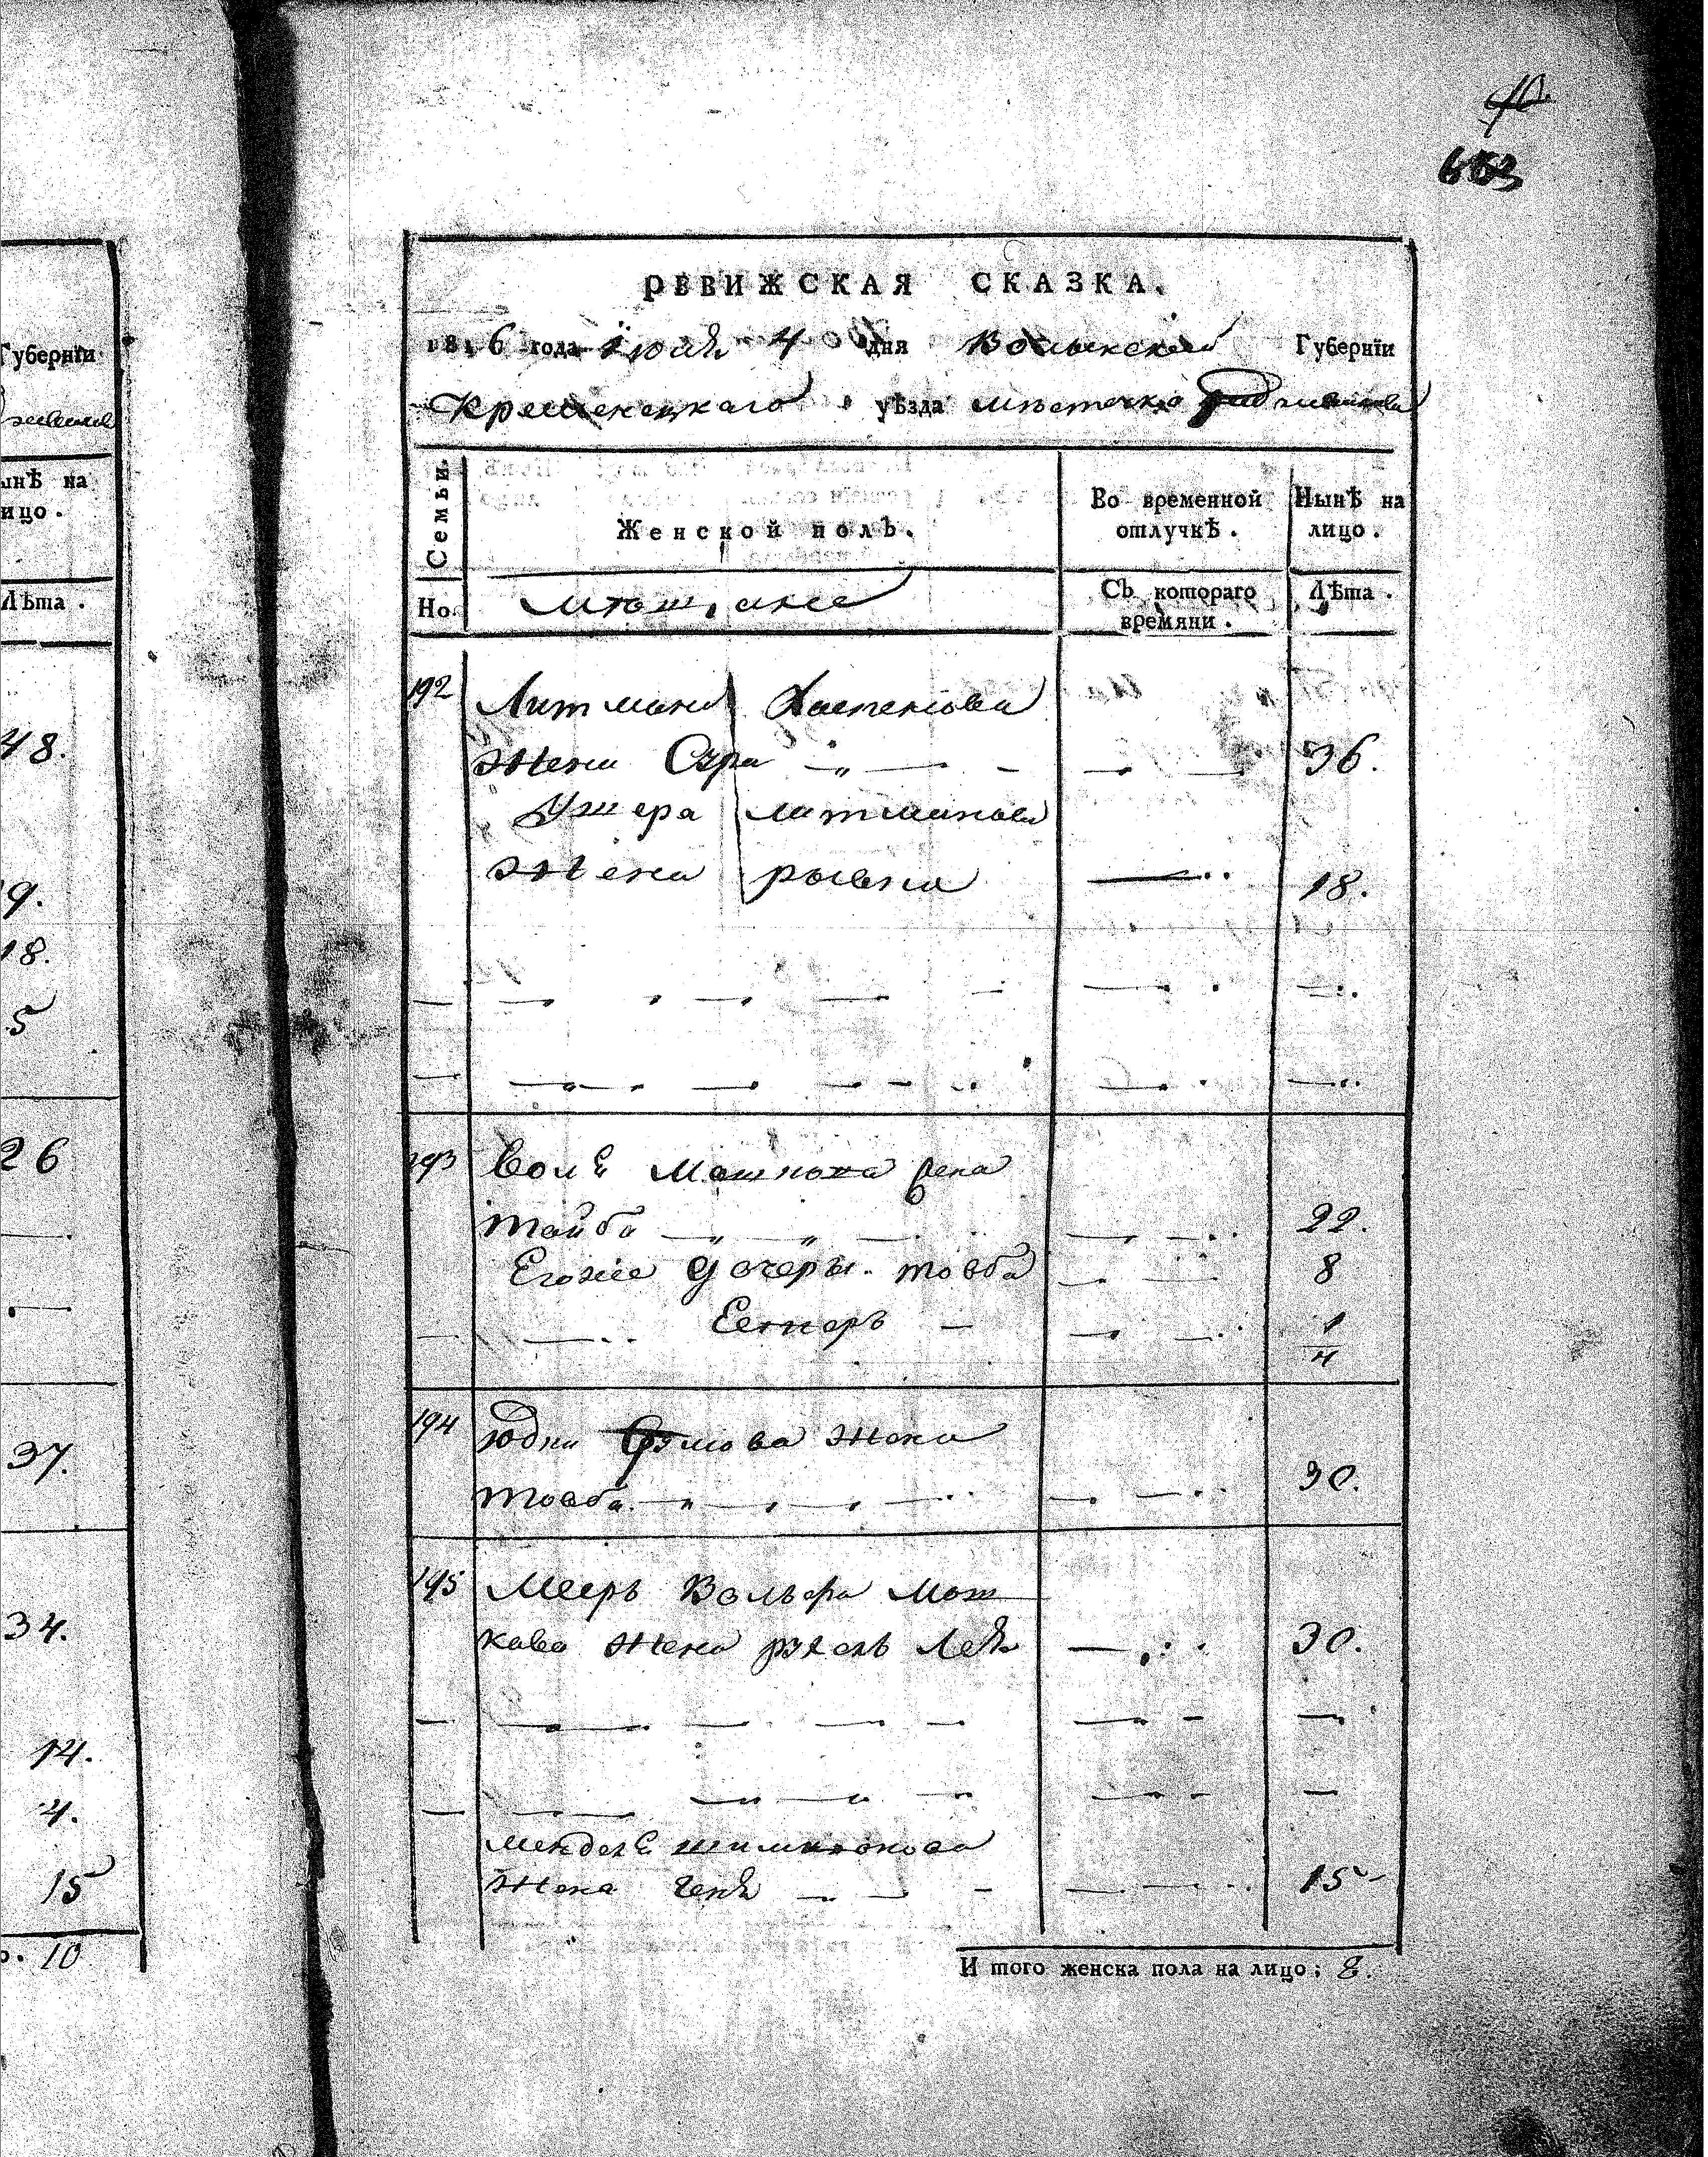 653
Губернїи
ынѣ на
ицо.
Лѣта.
48.
9.
18.
5
26
37.
34.
14.
4.
15
о. 10
РЕВИЖСКАЯ СКАЗКА.
1816 года Іюля 4 дня Волынской Губернїи
Кременецкаго уѣзда мѣстечка
Семьи
Женской полъ.
Во временной отлучкѣ.
Нынѣ на лицо.
Но.
мѣщане
Съ котораго времяни.
Лѣта.
192 Литмана
жена Сура 36.
Ушера литманова
жена рывка 18.
193
тайба 22.
Егоже дочеръ товба 8
Естеръ 1/4
194 юдки жена
товба 30.
195 Мееръ Вольфа мош
кова жена рухль Лея 30.
жена геня 15
И того женска пола на лицо; 8.